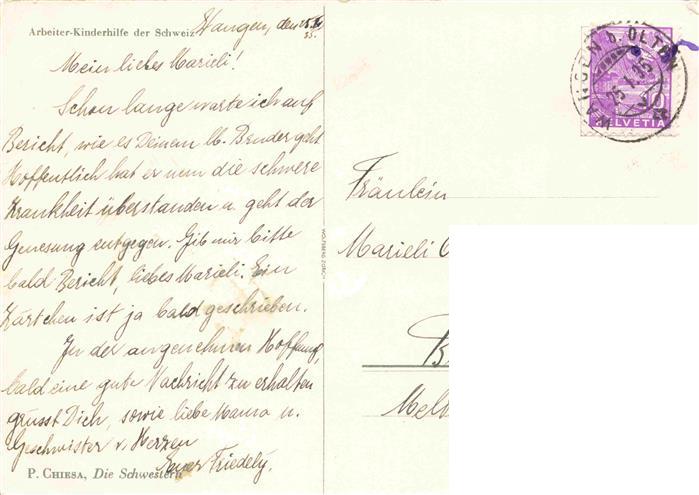 Arbeiter-Kinderhilfe der Schweiz
Wangen, den 25. 
35.
Mein liebes Marieli!
Schon lange warte ich auf
Bericht, wie es Deinem lb. Bruder geht
Hoffentlich hat er nun die schwere
Krankheit überstanden u. geht der
Genesung entgegen. Gib mir bitte
bald Bericht, liebes Marieli. Ein
Kärtchen ist ja bald geschrieben.
In der angenehmen Hoffnung,
bald eine gute Nachricht zu erhalten
grüsst Dich, sowie liebe Mama u.
Geschwister v. Herzen
Euer Friedely.
P. CHIESA, Die Schwestern
WOLFSBERG ZÜRICH
WANGEN b. OLTEN
HELVETIA
Fräulein
Marieli